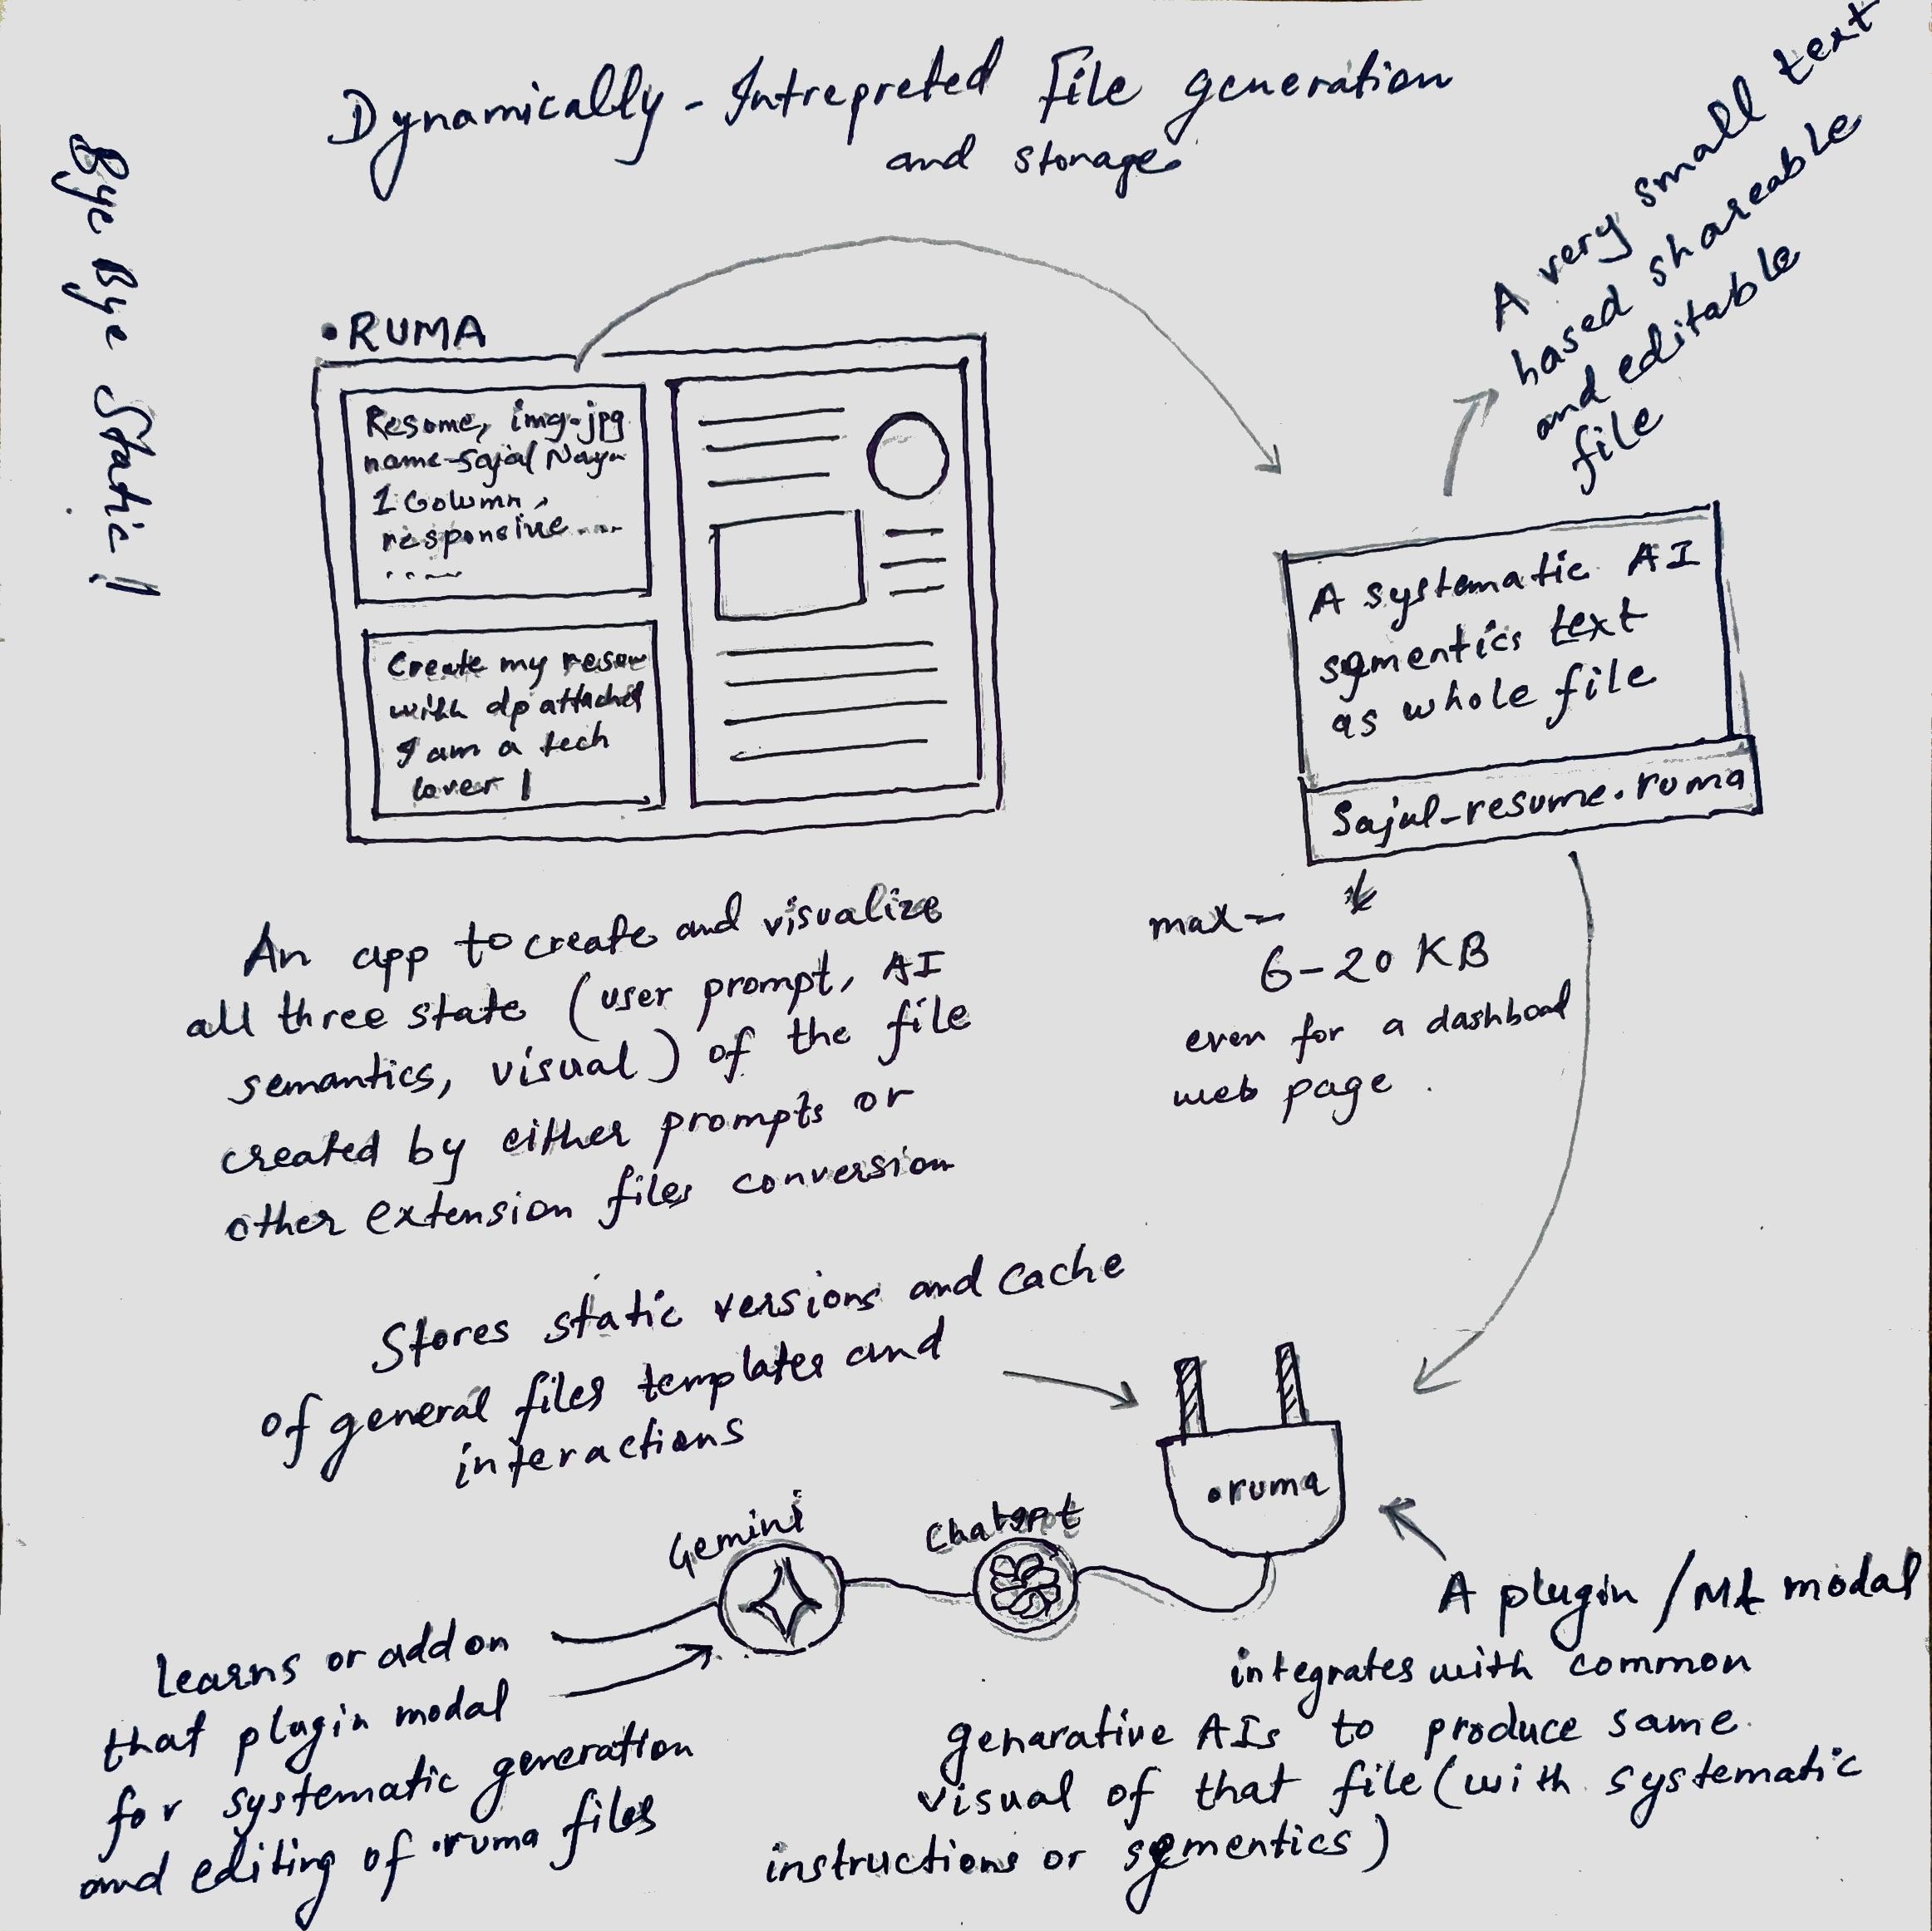 Dynamically - Intrepreted File generation
and storage
Bye Bye Static!
A very small text
based shareable
and editable
file
.RUMA
Resume, img.jpg
name-Sajal Naya
1 Column,
responsive....
Create my resume
with dp attached
I am a tech
lover !
A systematic AI
sementics text
as whole file
Sajal-resume.ruma
max-
6-20 KB
even for a dashboad
web page.
An app to create and visualize
all three state (user prompt, AI
semantics, visual) of the file
created by either prompts or
other extension files conversion
Stores static versions and cache
of general files templates and
interactions
.ruma
Gemini
Chatgpt
A plugin / ML modal
integrates with common
genarative AIs to produce same
visual of that file (with systematic
instructions or sementics)
learns or add on
that plugin modal
for systematic generation
and editing of .ruma files